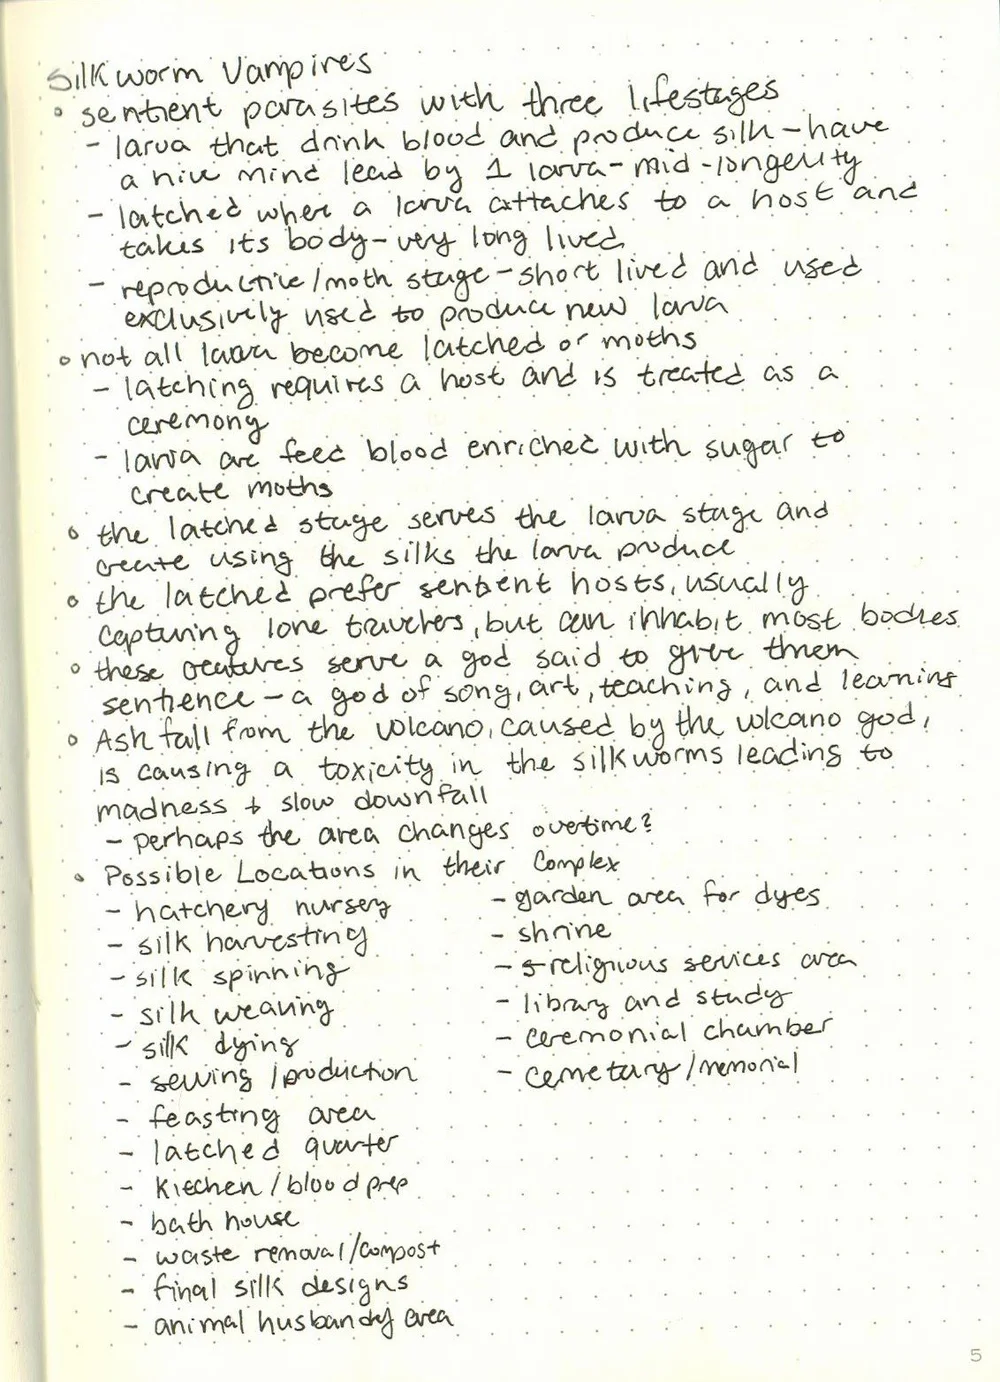 Silkworm Vampires
• sentient parasites with three lifestages
- larva that drink blood and produce silk - have
a hive mind lead by 1 larva - mid-longevity
- latched when a larva attaches to a host and
takes its body - very long lived
- reproductive/moth stage - short lived and used
exclusively used to produce new larva
• not all larva become latched or moths
- latching requires a host and is treated as a
ceremony
- larva are feed blood enriched with sugar to
create moths
• the latched stage serves the larva stage and
create using the silks the larva produce
• the latched prefer sentient hosts, usually
capturing lone travelers, but can inhabit most bodies
• these creatures serve a god said to give them
sentience - a god of song, art, teaching, and learning
• Ash fall from the volcano, caused by the volcano god,
is causing a toxicity in the silkworms leading to
madness + slow downfall
- perhaps the area changes overtime?
• Possible Locations in their Complex
- hatchery nursey
- silk harvesting
- silk spinning
- silk weaving
- silk dying
- sewing/production
- feasting area
- latched quarter
- kitchen/blood prep
- bath house
- waste removal/compost
- final silk designs
- animal husbandy area
- garden area for dyes
- shrine
- religious services area
- library and study
- ceremonial chamber
- cemetary/memorial
5